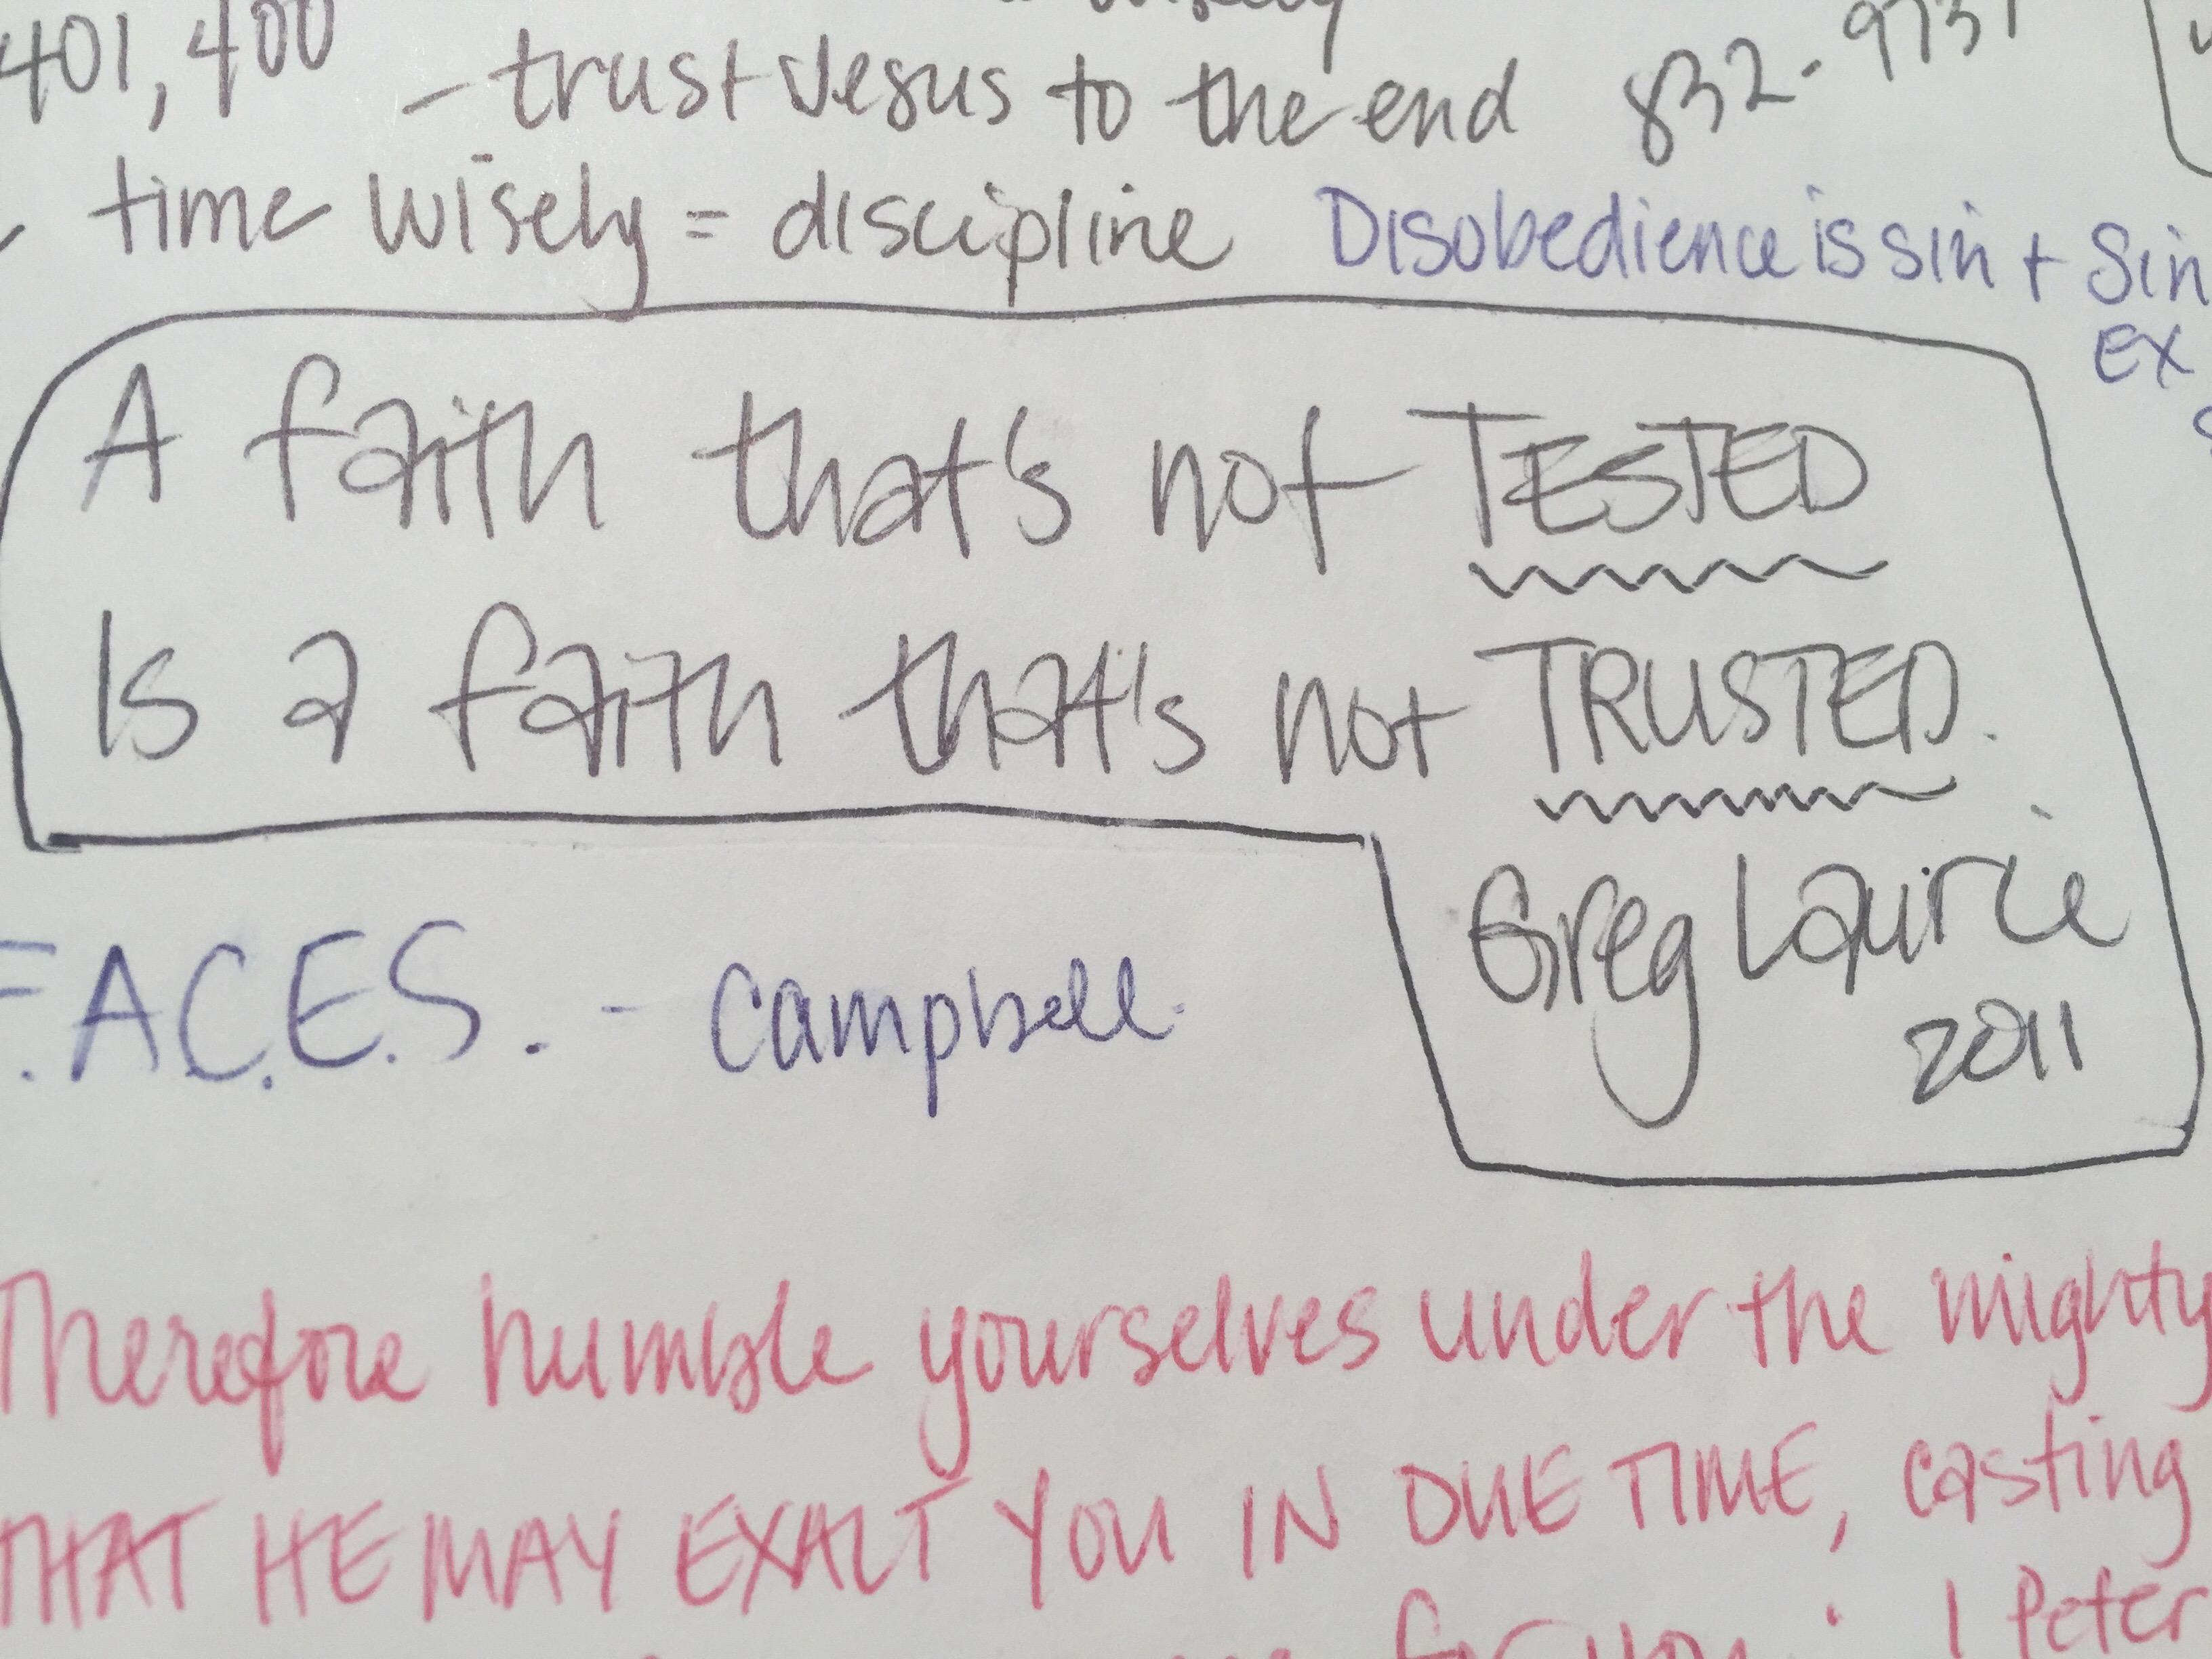 wisely
401, 400 - trust Jesus to the end 832-9731
time wisely = discipline Disobedience is sin + Sin
EX
A faith that's not TESTED
Is a faith that's not TRUSTED.
Greg Laurie
2011
F.A.C.E.S. - Campbell
Therefore humble yourselves under the mighty
THAT HE MAY EXALT YOU IN DUE TIME, casting
for you. 1 Peter